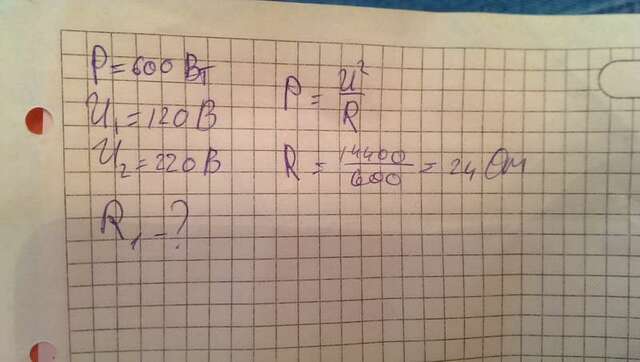 P = 600 Вт
U₁ = 120 В
U₂ = 220 В
R₁ - ?
P = U²/R
R = 14400/600 = 24 Ом